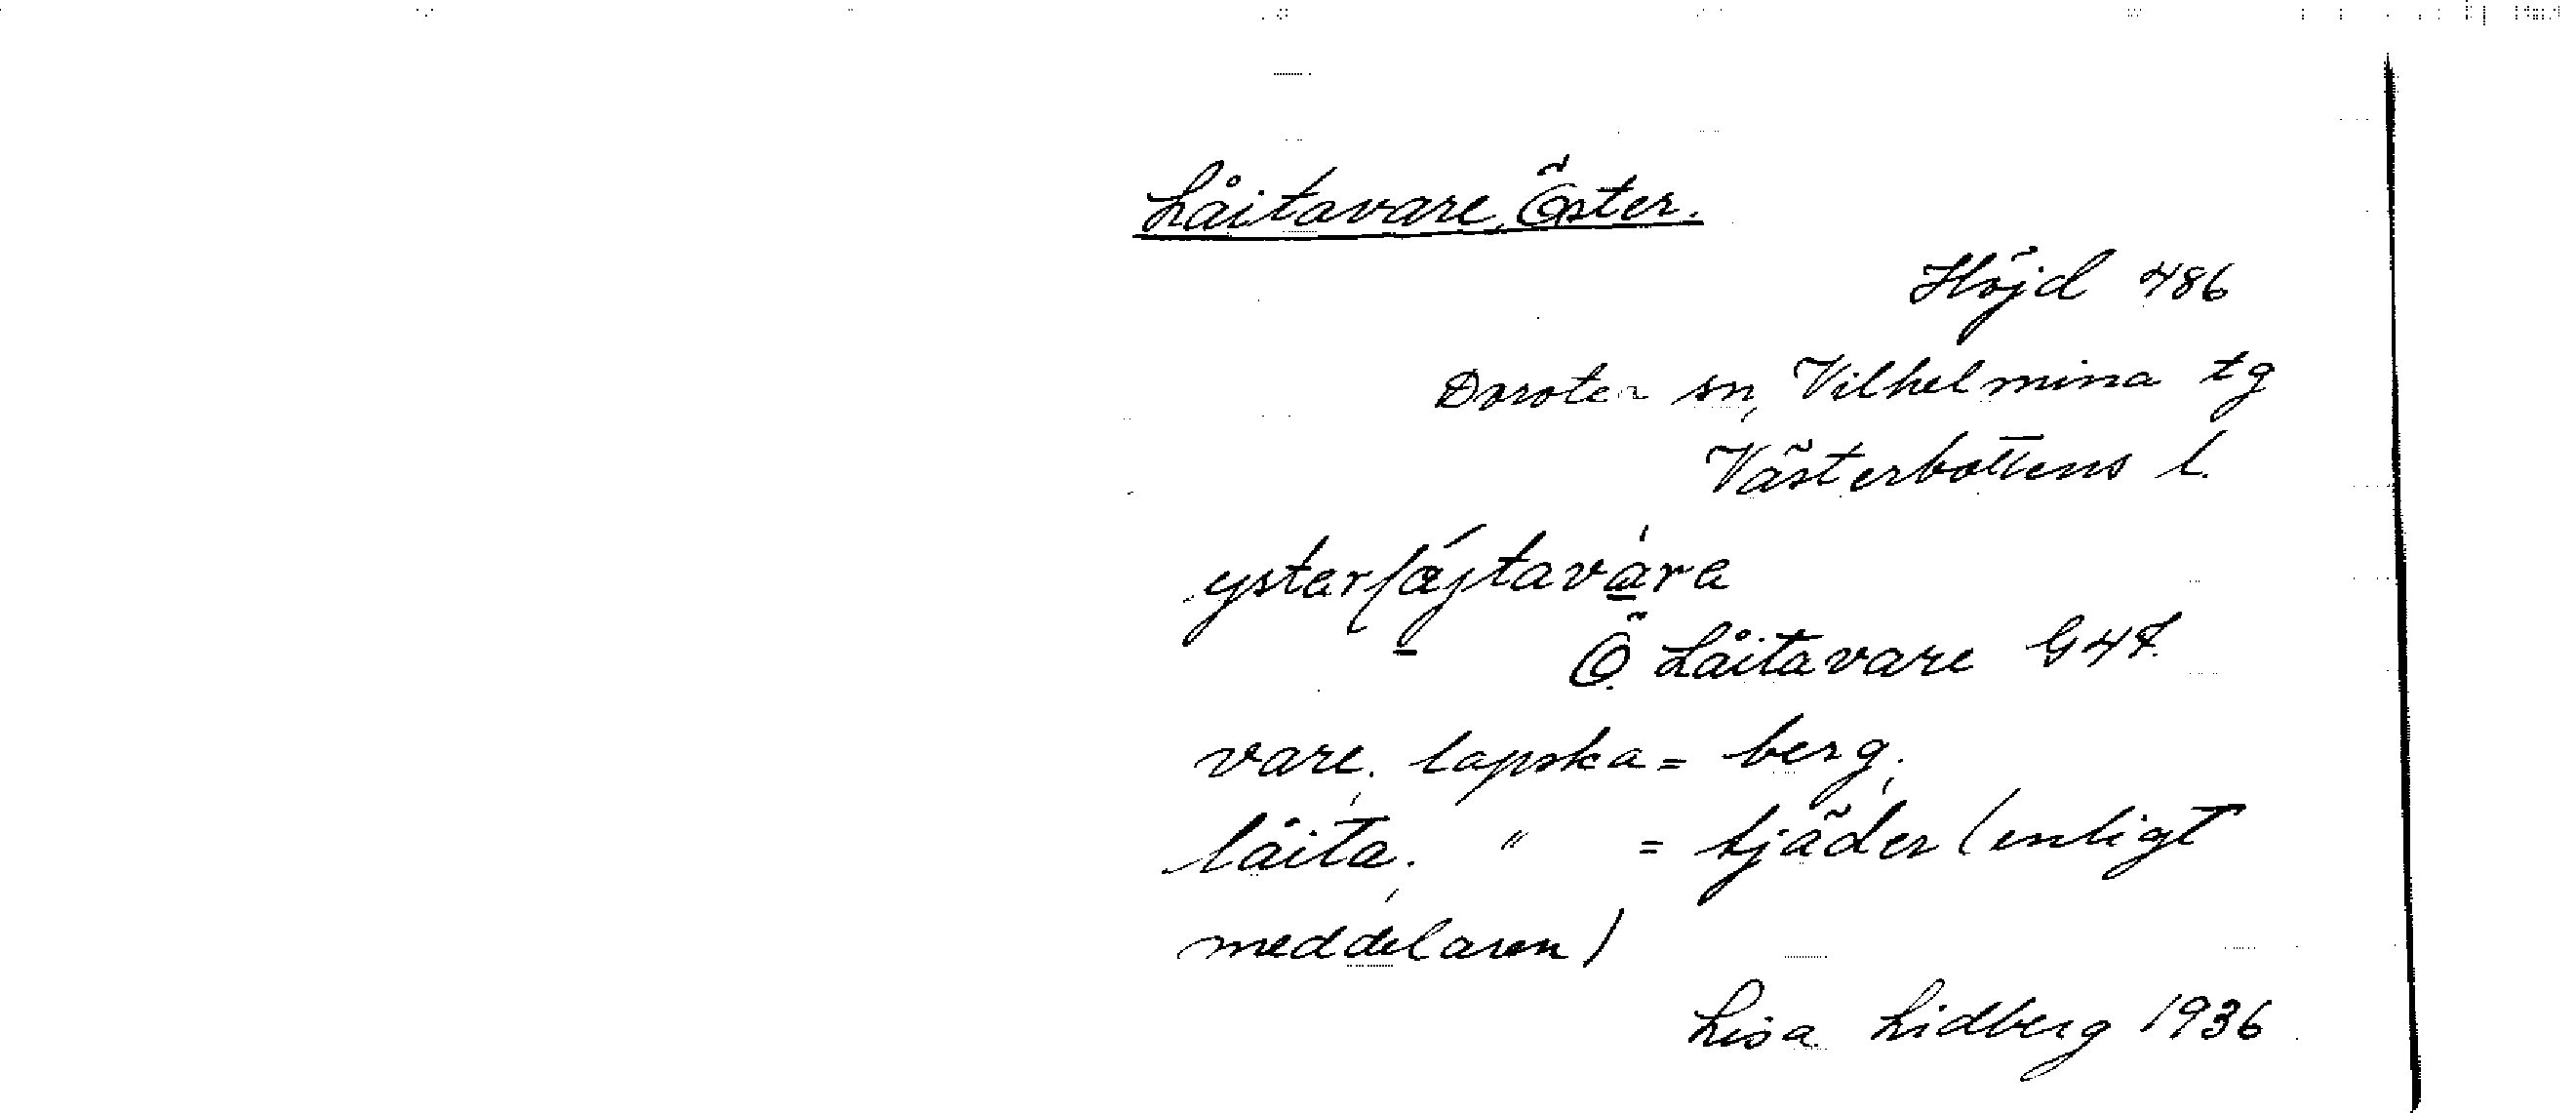 Låitavare, Öster.
Höjd 486
Dorotea sn, Vilhelmina tg
Västerbottens l.
Ö. Låitavare G47.
vare, lapska = berg,
låita, " = tjäder (enligt
meddelaren)
Lisa Lidberg 1936